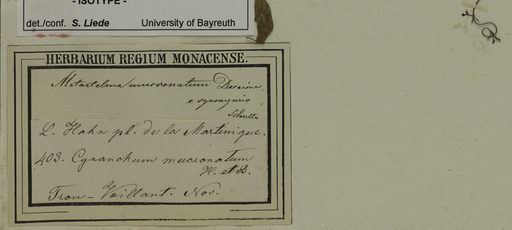 - ISOTYPE -
det./conf. S. Liede University of Bayreuth
HERBARIUM REGIUM MONACENSE.
Metastelma mucronatum Decaisne
e synonymis
L. Hahn pl. de la Martinique.
403. Cynanchum mucronatum
H. et B.
Trou-Vaillant. Nov.